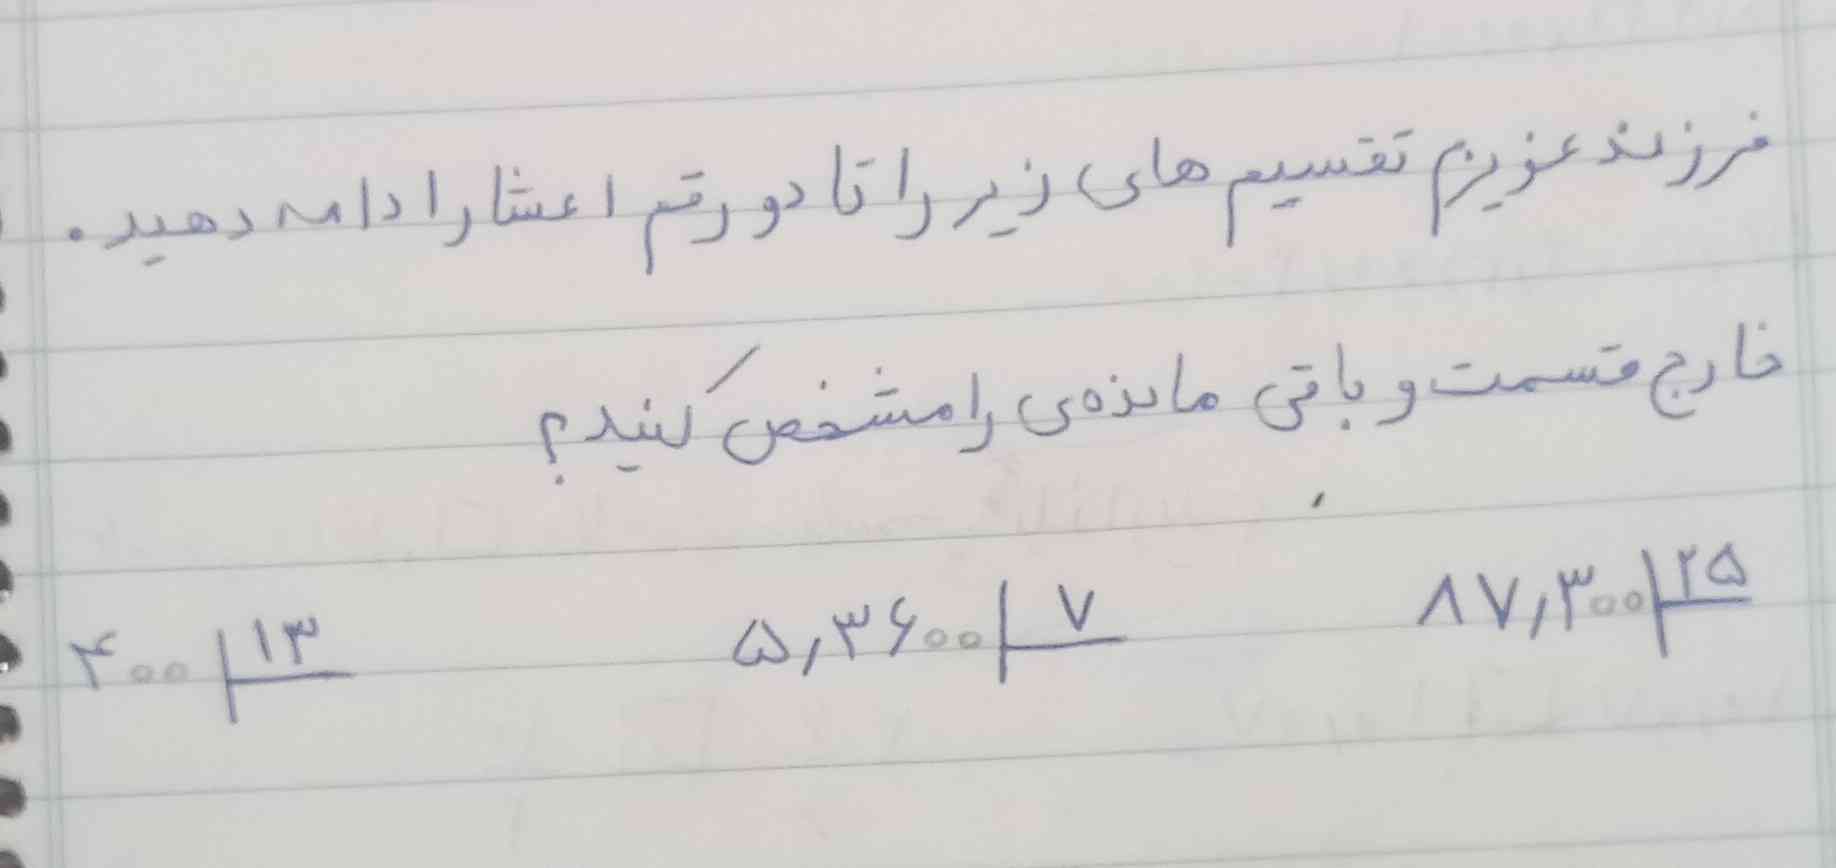 فرزند عزیزم تقسیم های زیر را تا دو رقم اعشار ادامه دهید.
خارج قسمت و باقی مانده‌ی را مشخص کنید؟
۴۰۰ | ۱۳ ۵٫۳۶۰۰ | ۷ ۸۷٫۳۰۰ | ۲۵